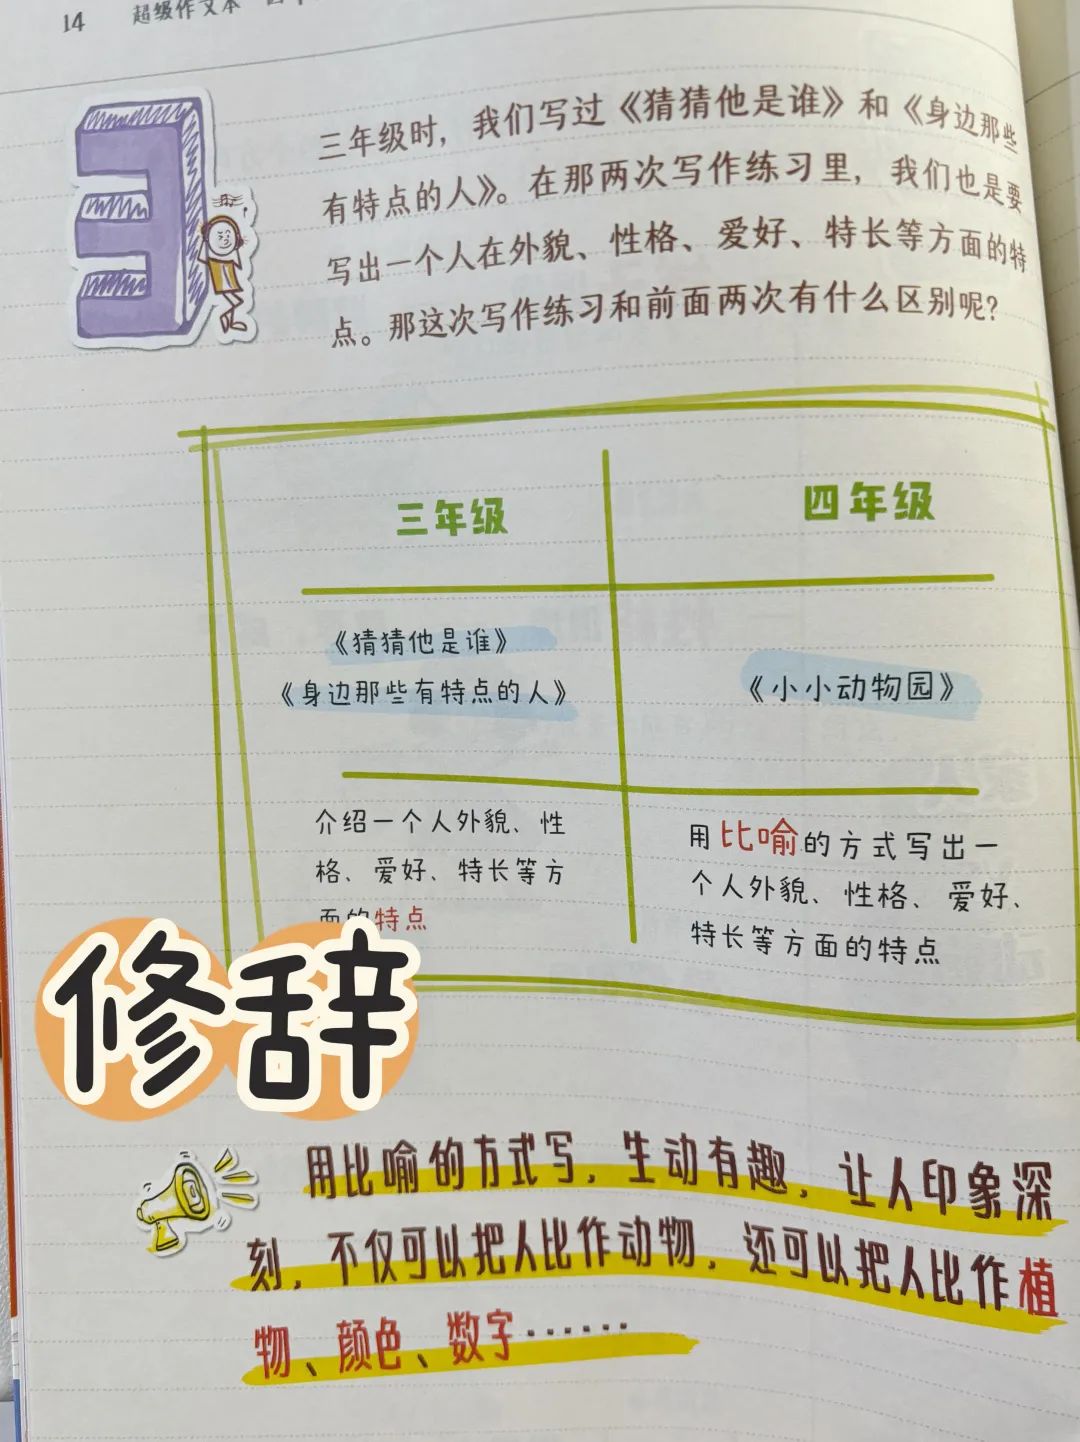 14 超级作文本
三年级时，我们写过《猜猜他是谁》和《身边那些
有特点的人》。在那两次写作练习里，我们也是要
写出一个人在外貌、性格、爱好、特长等方面的特
点。那这次写作练习和前面两次有什么区别呢？
三年级
四年级
《猜猜他是谁》
《身边那些有特点的人》
《小小动物园》
介绍一个人外貌、性
格、爱好、特长等方
面的特点
用比喻的方式写出一
个人外貌、性格、爱好、
特长等方面的特点
修辞
用比喻的方式写，生动有趣，让人印象深
刻，不仅可以把人比作动物，还可以把人比作植
物、颜色、数字……